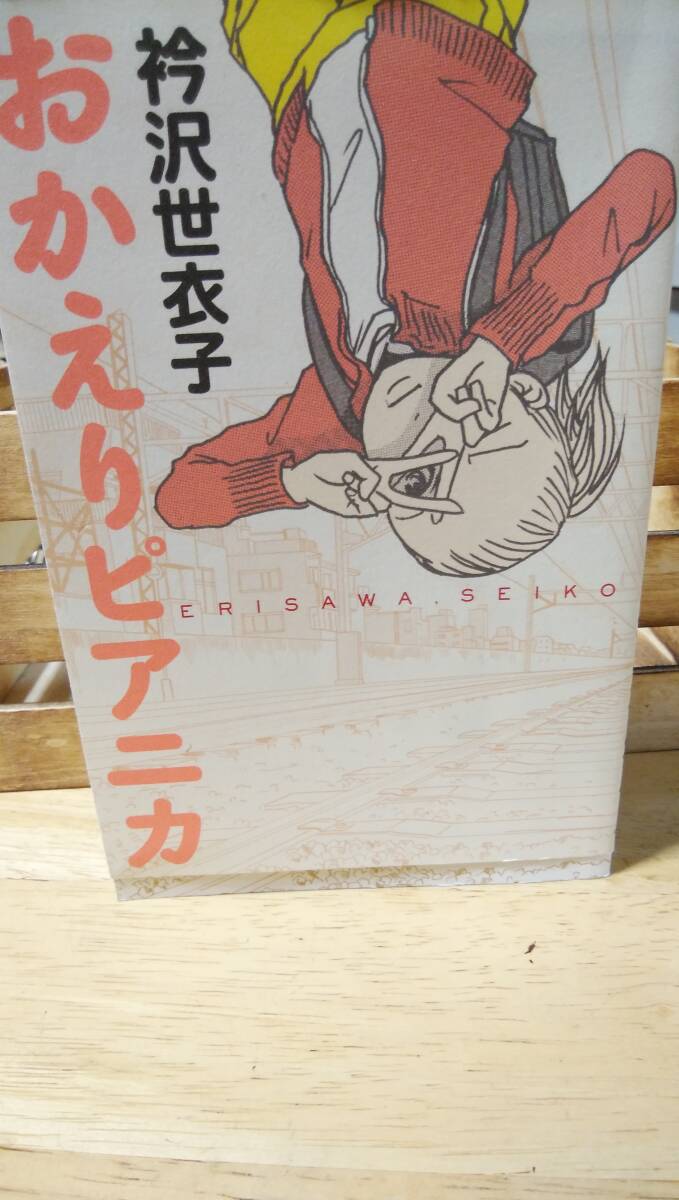 おかえりピアニカ
衿沢世衣子
ERISAWA.SEIKO